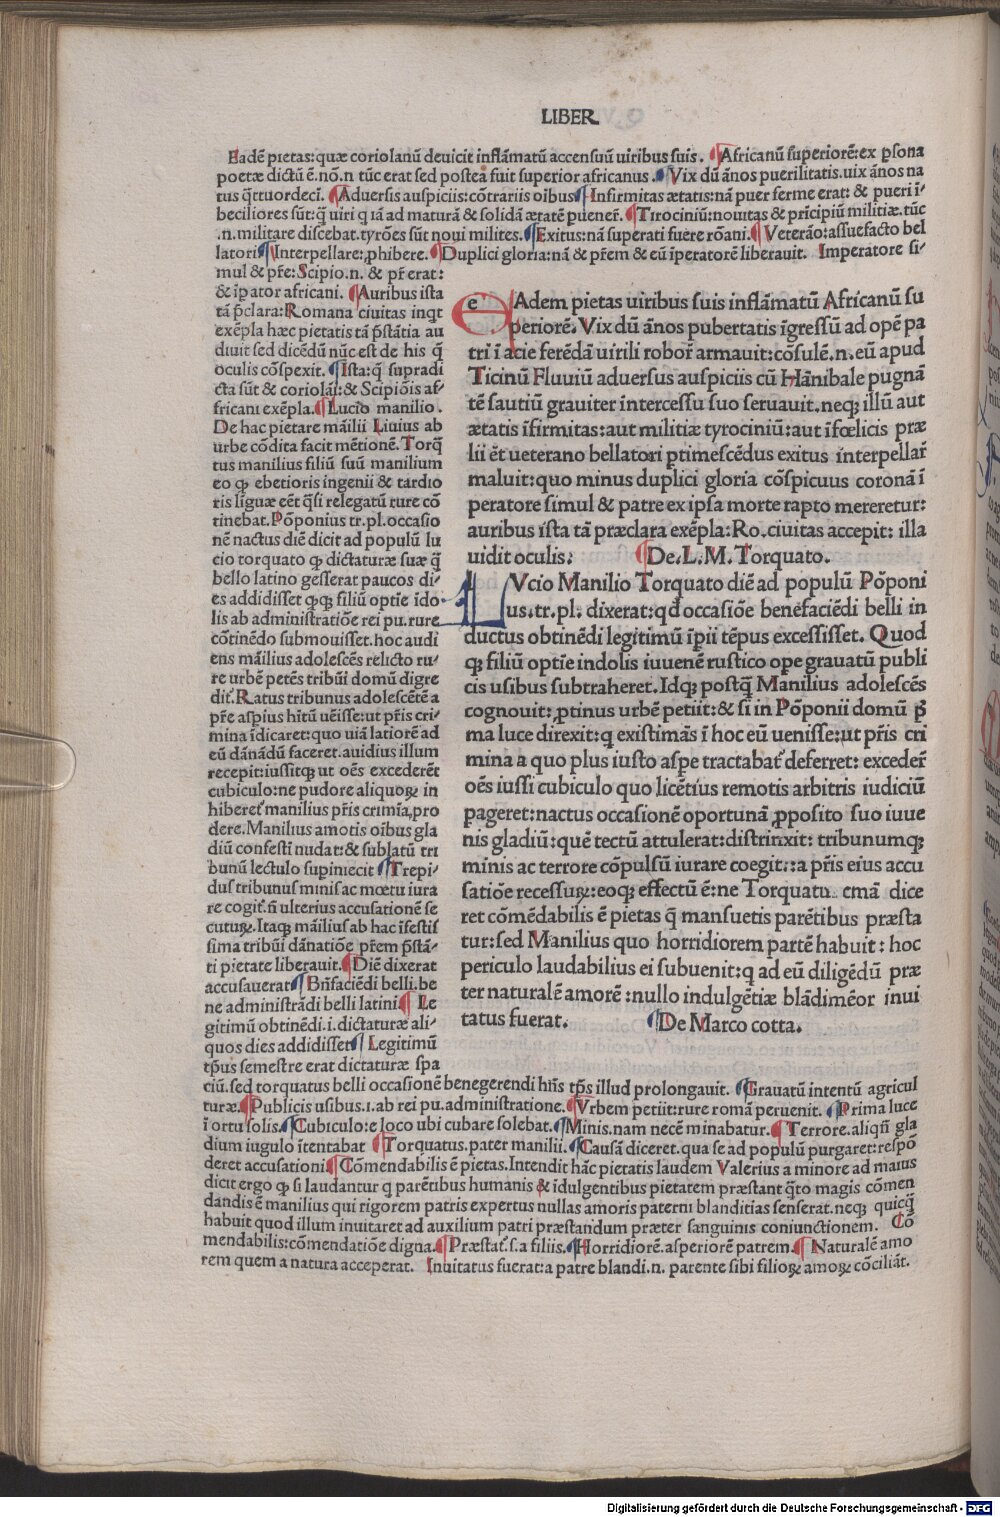 LIBER
Eadē pietas:quæ coriolanū deuicit inflāmatū accensuū uiribus suis. ¶Africanū superiorē:ex psona
poetæ dictū ē.nō.n tūc erat sed postea fuit superior africanus. ¶Vix dū ānos puerilitatis.uix ānos na
tus q̄ttuordeci. ¶Aduersis auspiciis:cōtrariis oibus ¶Infirmitas ætatis:nā puer ferme erat: & pueri ī-
beciliores sūt:q̄ uiri q iā ad maturā & solidā ætatē puenēt. ¶Tirociniū:nouitas & prīcipiū militiæ.tūc
.n.militare discebat.tyrōes sūt noui milites. ¶Exitus:nā superati fuere rōani. ¶Veterāo:assuefacto bel
latori ¶Interpellare:phibere. ¶Duplici gloria:nā & přem & eū īperatorē liberauit. Imperatore si-
mul & přre:Scipio.n. & př erat:
& īpator africani. ¶Auribus ista
tā p̄clara:Romana ciuitas inqt
exēpla hæc pietatis tā p̄stātia au
diuit sed dicēdū nūc est de his q̄
oculis cōspexit. ¶Ista:q̄ supradi
cta sūt & coriolāi:& Scipiōis af-
fricani exēpla. ¶Lucio manilio.
De hac pietare māilii Liuius ab
urbe cōdita facit mētionē.Torq̄
tus manilius filiū suū manilium
eo ꝙ ebetioris ingenii & tardio
ris liguæ eēt q̄si relegatū rure cō
tinebat.Pōponius tr.pl.occasio
nē nactus diē dicit ad populū lu
cio torquato ꝙ dictaturæ suæ q̄
bello latino gesserat paucos di-
es addidisset ꝙꝗ filiū optie īdo
lis ab administratiōe rei pu.rure
cōtinēdo submouisset.hoc audi
ens māilius adolescēs relicto ru-
re urbē petēs tribūi domū digre
dit̄.Ratus tribunus adolescētē a
přre aspius hītū uēisse:ut přis cri-
mina īdicaret:quo uiā latiorē ad
eū dānādū faceret.auidius illum
recepit:iussitq; ut oēs excederēt
cubiculo:ne pudore aliquoꝝ in
hiberet̄ manilius přis crimīa,pro
dere.Manilius amotis oībus gla
diū confestī nudat:& sublatū tri
bunū lectulo supiniecit ¶Trepi-
dus tribunus minis ac mœtu iura
re cogit̄.n̄ ulterius accusationē se
cutuꝝ.Itaq; māilius ab hac īfestis
sima tribūi dānatiōe přem p̄stā-
ti pietate liberauit. ¶Diē dixerat
accusauerat ¶Bn̄faciēdi belli.be
ne administrādi belli latini ¶Le
gitimū obtinēdi.i.dictaturæ ali-
quos dies addidisset ¶Legitimū
tp̄us semestre erat dictaturæ spa
ciū.sed torquatus belli occasionē benegerendi hn̄s tp̄s illud prolongauit. ¶Grauatū intentū agricul
turæ. ¶Publicis usibus.i.ab rei pu.administratione. ¶Vrbem petiit:rure romā peruenit. ¶Prima luce
ī ortu solis. ¶Cubiculo:e loco ubi cubare solebat. ¶Minis.nam necē minabatur. ¶Terrore.aliqn̄ gla
dium iugulo ītentabat ¶Torquatus.pater manilii. ¶Causā diceret.qua se ad populū purgaret:respō
deret accusationi ¶Cōmendabilis ē pietas.Intendit hāc pietatis laudem Valerius a minore ad maius
dicit ergo ꝙ si laudantur q parētibus humanis & īdulgentibus pietatem præstant q̄to magis cōmen
dandis ē manilius qui rigorem patris expertus nullas amoris paterni blanditias senserat.neq; quicq̄
habuit quod illum inuitaret ad auxilium patri præstandum præter sanguinis coniunctionem. Cō
mendabilis:cōmendatiōe digna. ¶Præstat̄.s.a filiis. ¶Horridiorē.asperiorē patrem. ¶Naturalē amo
rem quem a natura acceperat. Inuitatus fuerat:a patre blandi.n. parente sibi filioꝝ amoꝝ cōciliāt.
eAdem pietas uiribus suis inflāmatū Africanū su
periorē.Vix dū ānos pubertatis īgressū ad opē pa
tri ī acie ferēdā uirili robor̄ armauit:cōsulē.n.eū apud
Ticinū Fluuiū aduersus auspiciis cū Hānibale pugnā
tē sautiū grauiter intercessu suo seruauit.neq; illū aut
ætatis īfirmitas:aut militiæ tyrociniū:aut īfœlicis præ
lii ēt ueterano bellatori ptimescēdus exitus interpellar̄
maluit:quo minus duplici gloria cōspicuus coronā ī
peratore simul & patre ex ipsa morte rapto mereretur:
auribus ista tā præclara exēpla:Ro.ciuitas accepit: illa
uidit oculis: ¶De.L.M.Torquato.
LVcio Manilio Torquato diē ad populū Pōponi
us.tr.pl. dixerat:qd occasiōe benefaciēdi belli in
ductus obtinēdi legitimū īpii tēpus excessisset. Quod
q; filiū optie indolis iuuenē rustico ope grauatū publi
cis usibus subtraheret.Idq; postq̄ Manilius adolescēs
cognouit: ꝓtinus urbē petiit:& si in Pōponii domū p̄
ma luce direxit:q existimās ī hoc eū uenisse:ut přis cri
mina a quo plus iusto aspe tractabat̄ deferret: exceder̄
oēs iussi cubiculo quo licētius remotis arbitris iudiciū
pageret:nactus occasionē oportunā ꝓposito suo iuue
nis gladiū:quē tectū attulerat:distrinxit: tribunumq;
minis ac terrore cōpulsū iurare coegit::a přis eius accu
satiōe recessuꝝ:eoq; effectū ē:ne Torquatu cmā dice
ret cōmēdabilis ē pietas q̄ mansuetis parētibus præsta
tur:sed Manilius quo horridiorem partē habuit: hoc
periculo laudabilius ei subuenit:q ad eū diligēdū præ
ter naturalē amorē :nullo indulgētiæ blādimēor inui
tatus fuerat. ¶De Marco cotta.
Digitalisierung gefördert durch die Deutsche Forschungsgemeinschaft - DFG